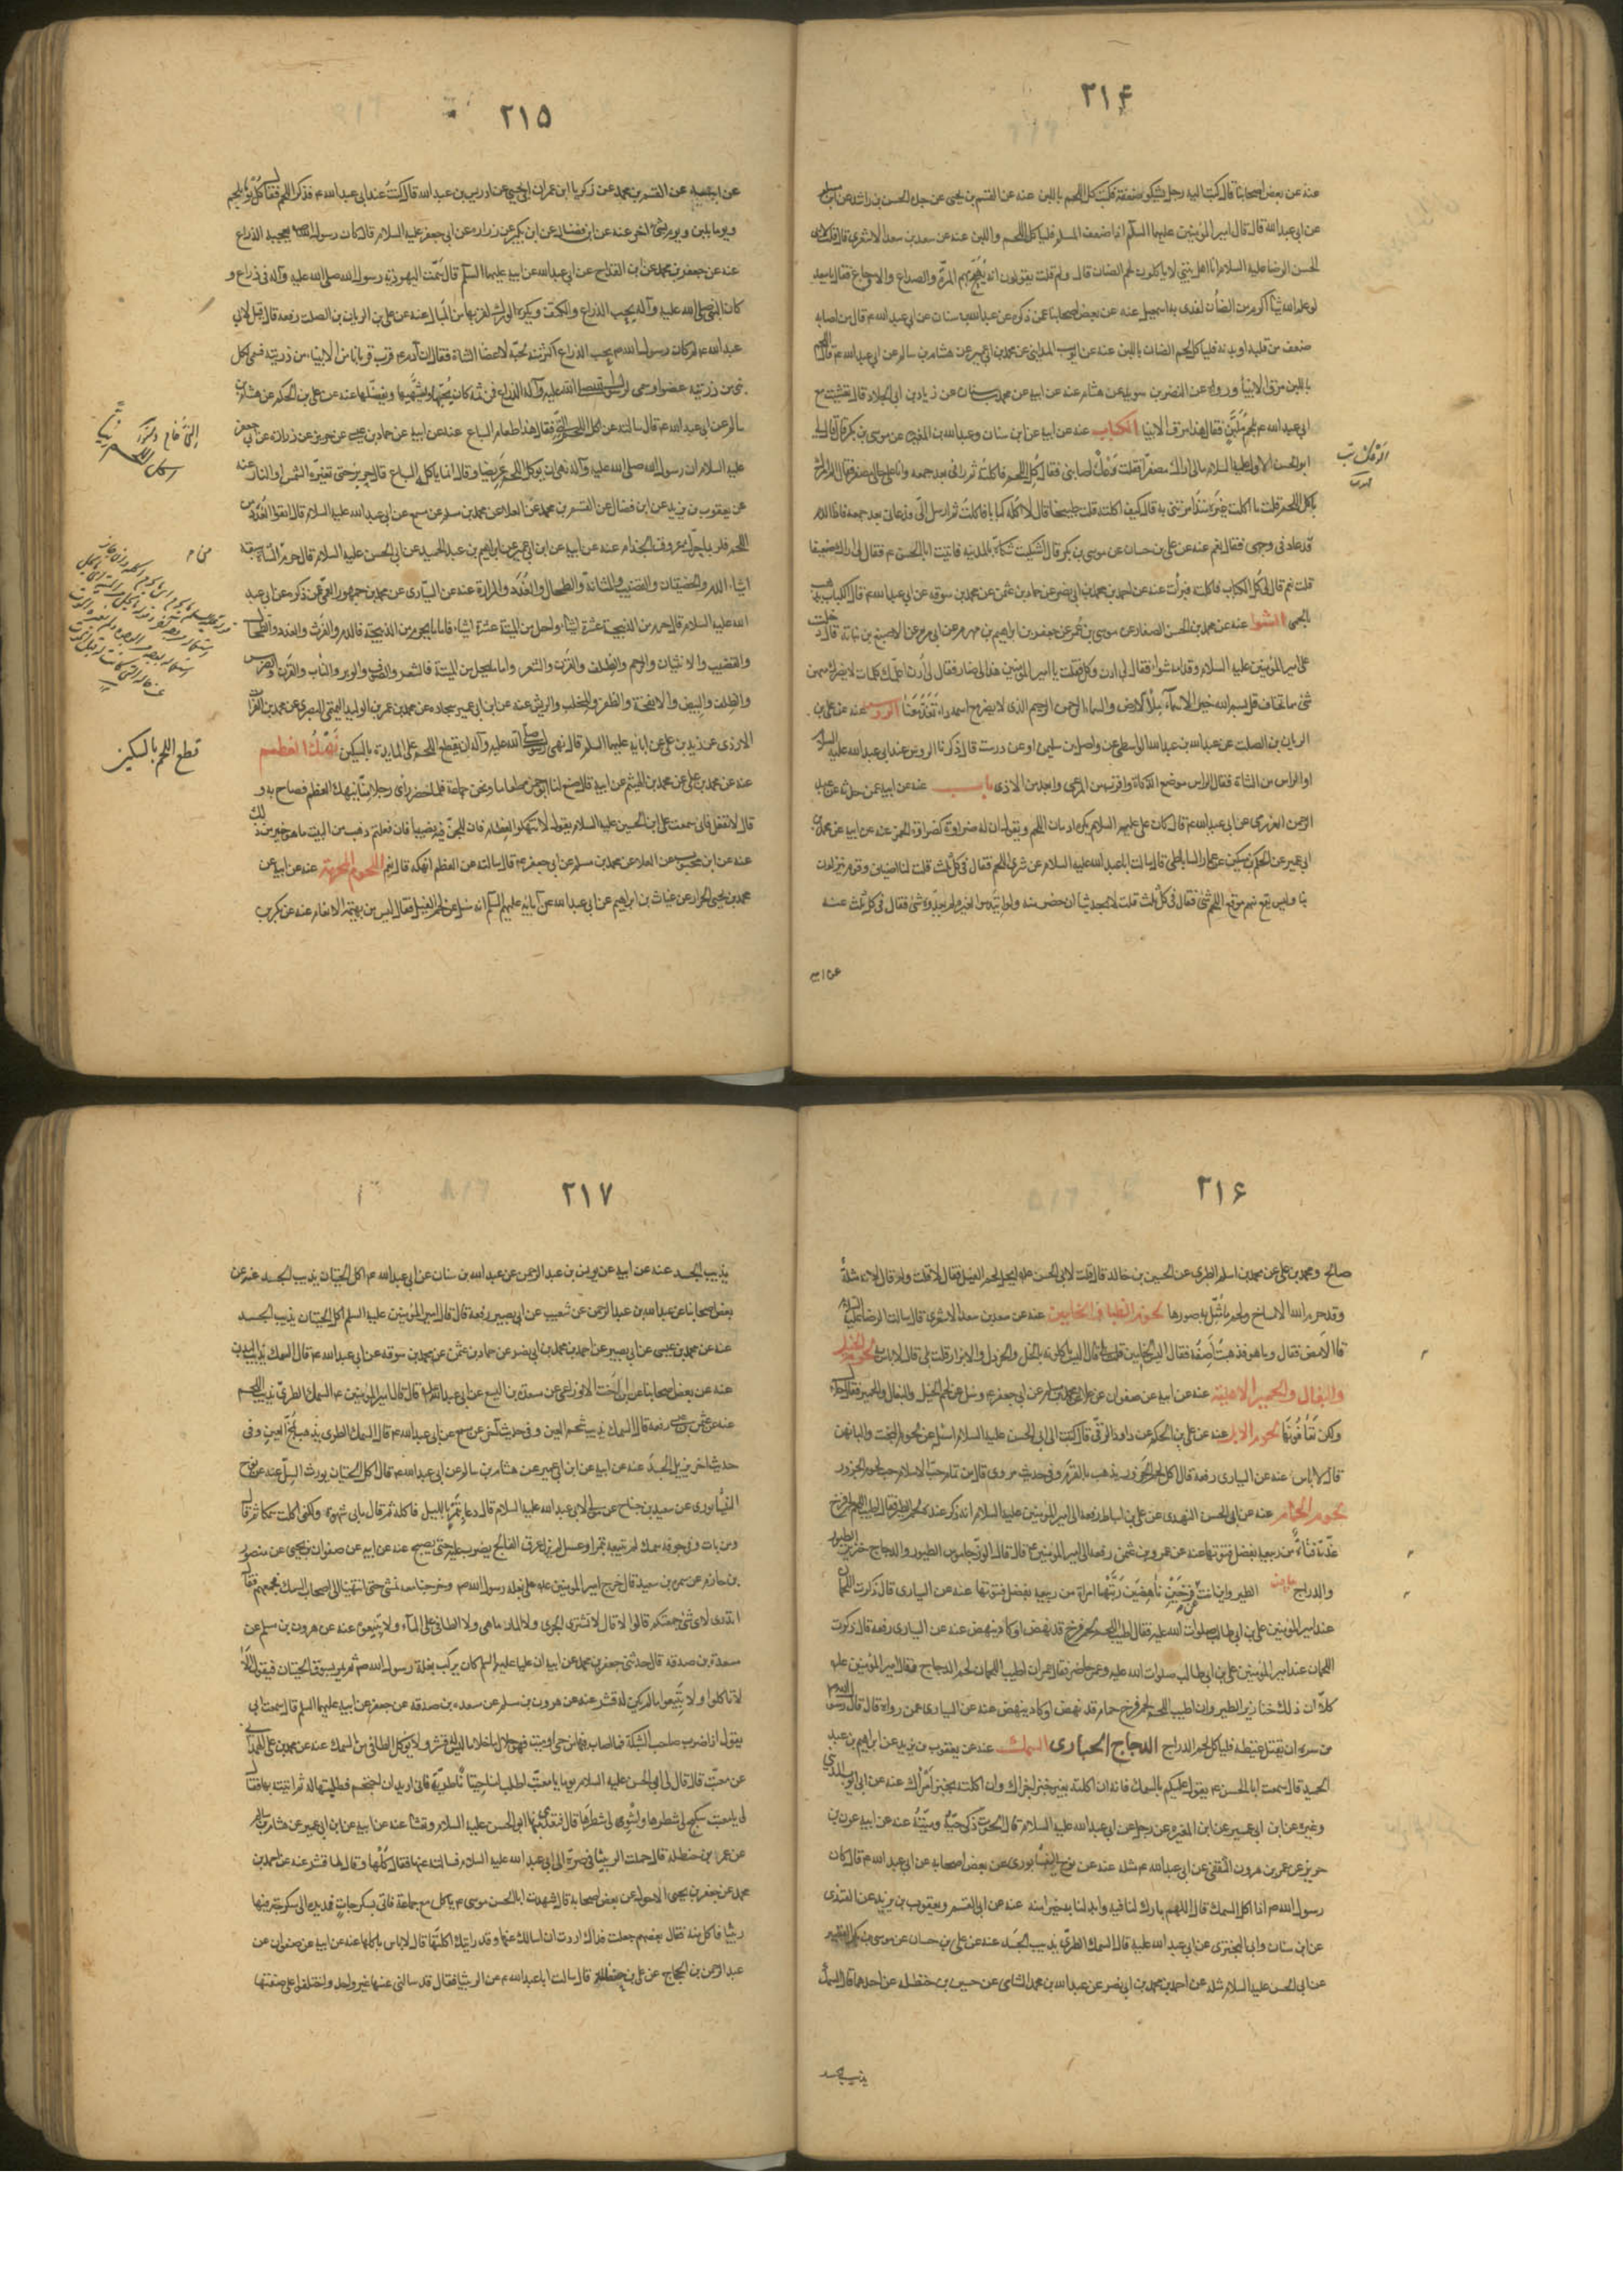 ٢١۴
عنه عن بعض اصحابنا قال كتب اليه رجل يشكو ضعفه فكتب كل اللحم باللبن عنه عن القسم بن يحيى عن جده الحسن بن راشد عن
عن ابى عبد الله قال قال امير المؤمنين عليه السلم اذا ضعف المسلم فلياكل اللحم واللبن عنه عن سعد بن سعد الاشعرى قال قلت لابى
الحسن الرضا عليه السلام ان اهل بيتى لا ياكلون لحم الضان قال ولم قلت يقولون انه يهيج بهم المرة والصداع والاوجاع فقال يا سعد
لو علم الله شيئا اكرم من الضأن لفدى به اسمعيل عنه عن بعض اصحابنا عمن ذكره عن عبد الله بن سنان عن ابى عبد الله ع قال من اصابه
ضعف من قلبه او بدنه فلياكل لحم الضان باللبن عنه عن ايوب المدينى عن محمد بن ابى عمير عن هشام بن سالم عن ابى عبد الله ع قال
باللبن مرق الانبيا ورواه عن النضر بن سويد عن هشام عنه عن ابيه عن محمد بن سنان عن زياد بن ابى الحلال قال تعشيت مع
ابى عبد الله ع بلحم ملبن فقال هذا مرق الانبيا الكباب عنه عن ابيه عن ابن سنان وعبد الله بن المغيره عن موسى بن بكر قال قال لى
ابو الحسن الاول عليه السلام مالى اراك مصفرا فقلت وعك اصابنى فقال كل اللحم فاكلته ثم رانى بعد جمعه وانا على حالى مصفر فقال الم امرك
باكل اللحم قلت ما اكلت غيره منذ امرتنى به قال كيف اكلته قلت طبيخا قال لا كله كبابا فاكلت ثم ارسل الى فدعانى بعد جمعه فاذا الدم
قد عاد فى وجهى فقال نعم عنه عن على بن حسان عن موسى بن بكر قال اشتكيت شكاة بالمدينه فاتيت ابا الحسن ع فقال لى اراك ضعيفا
قلت نعم قال لى كل الكباب فاكلته فبرأت عنه عن احمد بن محمد بن ابى نصر عن حماد بن عثمن عن محمد بن سوقه عن ابى عبد الله ع قال الكباب يذهب
بالحمى الشوا عنه عن محمد بن الحسن الصفار عن موسى بن عمر عن جعفر بن ابراهيم بن مهزم عن ابى مريم عن الاصبغ بن نباتة قال دخلت
على امير المؤمنين عليه السلام وقدامه شوا فقال لى ادن وكل فقلت يا امير المؤمنين هذا لى ضار فقال لى ادن اعلمك كلمات لا يضرك معهن
شئ مما تخاف قل بسم الله خير الاسمآء ملأ الارض والسمآء الرحمن الرحيم الذى لا يضر مع اسمه داء تغد معنا الروس عنه عن على بن
الريان بن الصلت عن عبيد الله بن عبد الله الواسطى عن واصل بن سليمن او عن درست قال ذكرنا الروس عند ابى عبد الله عليه السلام
او الراس من الشاة فقال الراس موضع الذكاة واقرب من المرعى وابعد من الاذى باب عنه عن ابيه عمن حدثه عن عبد
الرحمن العزرمى عن ابى عبد الله ع قال كان على عليه السلام يكره ادمان اللحم ويقول ان له ضراوة كضراوة الخمر عنه عن ابيه عن محمد بن
ابى عمير عن الحكم بن مسكين عن عمار الساباطى قال سالت ابا عبد الله عليه السلام عن شرى اللحم فقال فى كل ثلث قلت لنا اضياف وقوم ينزلون
بنا وليس يقع منهم موقع اللحم شئ فقال فى كل ثلث قلت لا نجد شيئا احضر منه ولو ائتدموا بغيره لم يعدوه شئ فقال فى كل ثلث عنه
عن ابيه
٢١٥
عن ابيه عن القسم بن محمد عن زكريا ابن عمران ابى يحيى عن ادريس بن عبد الله قال كنت عند ابى عبد الله ع فذكر اللحم فقال كل يوما بلحم
ويوما بلبن ويوما بشئ اخر عنه عن ابن فضال عن ابن بكير عن زراره عن ابى جعفر عليه السلام قال كان رسول الله يعجبه الذراع
عنه عن جعفر بن محمد عن ابن القداح عن ابى عبد الله عن ابيه عليهما السلم قال سمت اليهودية رسول الله صلى الله عليه وآله فى ذراع و
كان النبى صلى الله عليه وآله يحب الذراع والكتف ويكره الورك لقربها من المبال عنه عن على بن الريان بن الصلت رفعه قال قيل لابى
عبد الله ع لم كان رسول الله ص يحب الذراع اكثر منه لحبه لاعضا الشاة فقال ان آدم ع قرب قربانا من الانبيا من ذريته فسمى لكل
نبى من ذريته عضوا وسمى لرسول الله صلى الله عليه وآله الذراع فمن ثم كان يحبها ويشتهيها ويفضلها عنه عن على بن الحكم عن هشام بن
سالم عن ابى عبد الله ع قال سالته عن اكل اللحم النئ فقال هذا طعام السباع عنه عن ابيه عن حماد بن عيسى عن حريز عن زرارة عن ابى جعفر
عليه السلام ان رسول الله صلى الله عليه وآله نهى ان يوكل اللحم غريضا وقال انما ياكله السباع قال حريز حتى تغيره الشمس او النار عنه
عن يعقوب بن يزيد عن ابن فضال عن القسم بن محمد عن العلا عن محمد بن مسلم عن مسمع عن ابى عبد الله عليه السلام قال اتقوا الغدد من
اللحم فلربما حرك عروق الجذام عنه عن ابيه عن ابن ابى عمير عن ابراهيم بن عبد الحميد عن ابى الحسن عليه السلام قال حرم من الشاة سبعة
اشياء الدم والخصيتان والقضيب والمثانة والطحال والغدد والمرارة عنه عن السيارى عن محمد بن جمهور العمى عمن ذكره عن ابى عبد
الله عليه السلام قال حرم من الذبيحة عشرة اشياء واحل من الميتة عشرة اشياء فاما ما يحرم من الذبيحة فالدم والفرث والغدد والطحال
والقضيب والانثيان والرحم والظلف والقرن والشعر واما ما يحل من الميتة فالشعر والصوف والوبر والناب والقرن والضرس
والظلف والبيض والانفحة والظفر والمخلب والريش عنه عن ابن ابى عمير سجاده عن محمد بن عمر بن الوليد التميمى البصرى عن محمد بن الفرات
الازدى عن زيد بن على عن ابائه عليهم السلم قال نهى رسول الله صلى الله عليه وآله ان يقطع اللحم على المايدة بالسكين نهك العظم
عنه عن محمد بن على عن محمد بن الهيثم عن ابيه قال صنع لنا ابو حمزه طعاما ونحن جماعة فلما حضر راى رجلا منا ينهك العظم فصاح به و
قال لا تفعل فانى سمعت على بن الحسين عليه السلام يقول لا تنهكوا العظام فان للجن فيه نصيبا فان فعلتم ذهب من البيت ما هو خير من ذلك
عنه عن ابن محبوب عن العلا عن محمد بن مسلم عن ابى جعفر ع قال سالته عن العظم انهكه قال نعم اللحوم المحرمة عنه عن ابيه عن
محمد بن يحيى الخزاز عن غياث بن ابراهيم عن ابى عبد الله عن آبائه عليهم السلم انه سئل عن لحم الفيل فقال ليس من بهيمة الانعام عنه عن بكر بن
قطع اللحم بالسكين
٢١۶
صالح ومحمد بن على عن محمد بن اسلم الطبرى عن الحسين بن خالد قال قلت لابى الحسن ع ايحل لحم الفيل فقال لا قلت ولم قال لانه مثلة
وقد حرم الله الامساخ ولحم ما مثل به صورها لحوم الظبا والخاميز عنه عن سعد بن سعد الاشعرى قال سالت الرضا عليه السلام
قال الآمص فقال وما هو فذهبت اصفه فقال اليس الخاميز قلت بلى قال اليس ياكلونه بالخل والخردل والابزار قلت بلى قال لا باس به لحوم الخيل
والبغال والحمير الاهلية عنه عن ابيه عن صفوان عن علا عن محمد بن مسلم عن ابى جعفر ع وسئل عن لحم الخيل والبغال والحمير فقال حلال
ولكن تعافونها لحوم الابل عنه عن على بن الحكم عن داود الرقى قال كتبت الى ابى الحسن عليه السلام اسئله عن لحوم البخت والبانهن
قال لا باس عنه عن السيارى رفعه قال اكل لحم الجزور يذهب بالقرم وفى حديث مروى قال من تمام حب الاسلام حب لحم الجزور
لحوم الحمام عنه عن ابى الحسن النهدى عن على بن اسباط رفعه الى امير المؤمنين عليه السلام انه ذكر عنده لحم الطير فقال اطيب اللحم لحم فرخ
غذته فتاة من ربيعه بفضل قوتها عنه عن عمرو بن عثمن رفعه الى امير المؤمنين ع قال قال الوز جاموس الطيور والدجاج خنزير الطيور
والدراج حبش الطير واين انت عن فرخين ناهضين ربتهما امراة من ربيعه بفضل قوتها عنه عن السيارى قال ذكرت اللحمان
عند امير المؤمنين على بن ابى طالب صلوات الله عليه فقال اطيب اللحم لحم فرخ قد نهض او كاد ينهض عنه عن السيارى رفعه قال ذكرت
اللحمان عند امير المؤمنين على بن ابى طالب صلوات الله عليه وعمر حاضر فقال عمر ان اطيب اللحمان لحم الدجاج فقال امير المؤمنين ع
كلا ان ذلك خنازير الطير وان اطيب اللحم لحم فرخ حمام قد نهض او كاد ينهض عنه عن السيارى عمن رواه قال قال رسول الله ص
من سره ان يقتل غيظه فلياكل لحم الدراج الدجاج الحبارى السمك عنه عن يعقوب بن يزيد عن ابراهيم بن عبد
الحميد قال سمعت ابا الحسن ع يقول عليكم بالسمك فانه ان اكلته بغير خبز اجزاك وان اكلته بخبز امراك عنه عن ابى ايوب المدينى
وغيره عن ابن ابى عمير عن ابن المغيره عن رجل عن ابى عبد الله عليه السلام قال الحوت ذكى حيه وميته عنه عن ابيه عن عون بن
حريز عن عمر بن هرون الثقفى عن ابى عبد الله ع مثله عنه عن نوح النيسابورى عن بعض اصحابه عن ابى عبد الله ع قال كان
رسول الله ص اذا اكل السمك قال اللهم بارك لنا فيه وابدلنا به خيرا منه عنه عن ابى القسم ويعقوب بن يزيد عن القندى
عن ابن سنان وابى البخترى عن ابى عبد الله عليه قال السمك الطرى يذيب الجسد عنه عن على بن حسان عن موسى بن بكر
عن ابى الحسن عليه السلام مثله عن احمد بن محمد بن ابى نصر عن عبد الله بن محمد الشامى عن حسين بن حنظله عن احدهما قال السمك
يذيب الجسد
٢١٧
يذيب الجسد عنه عن ابيه عن يونس بن عبد الرحمن عن عبد الله بن سنان عن ابى عبد الله ع اكل الحيتان يذيب الجسد عنه عن
بعض اصحابنا عن عبد الله بن عبد الرحمن عن شعيب عن ابى بصير رفعه قال قال امير المؤمنين عليه السلم اكل الحيتان يذيب الجسد
عنه عن محمد بن عيسى عن ابى بصير عن احمد بن محمد بن ابى نصر عن حماد بن عثمن عن محمد بن سوقه عن ابى عبد الله ع قال السمك يذيب البدن
عنه عن بعض اصحابنا عن ابن اخت الاوزاعى عن مسعدة بن اليسع عن ابى عبد الله قال قال امير المؤمنين ع السمك الطرى يذيب اللحم
عنه عن عثمن بن عيسى رفعه قال السمك يذيب شحم العين وفى حديث آخر عن مسمع عن ابى عبد الله ع قال السمك الطرى يذهب بمخ العين وفى
حديث اخر يذبل الجسد عنه عن ابيه عن ابن ابى عمير عن هشام بن سالم عن ابى عبد الله ع قال اكل الحيتان يورث السل عنه عن نوح
النيسابورى عن سعيد بن جناح عن مولى لابى عبد الله عليه السلام قال دعا بتمر بالليل فاكله ثم قال ما بى شهوة ولكنى اكلت سمكا ثم قال
ومن بات وفى جوفه سمك لم يتبعه بتمر او عسل لم يزل عرق الفالج يضرب عليه حتى يصبح عنه عن ابيه عن صفوان بن يحيى عن منصور
بن حازم عن سمره بن سعيد قال خرج امير المؤمنين ع على بغلة رسول الله ص وخرجنا معه نمشى حتى انتهينا الى اصحاب السمك فجمعهم فقال
اتدرون لاى شئ جمعتكم قالوا لا قال لا تشتروا الجرى ولا المارماهى ولا الطافى على المآء ولا تبيعوه عنه عن هرون بن مسلم عن
مسعدة بن صدقه قال حدثنى جعفر بن محمد عن ابيه ان عليا عليه السلم كان يركب بغلة رسول الله ص ثم يمر بسوق الحيتان فيقول الا
لا تاكلوا ولا تبيعوا ما لم يكن له قشر عنه عن هرون بن مسلم عن مسعده بن صدقه عن جعفر عن ابيه عليهما السلم قال سمعت ابى
يقول اذا ضرب صاحب الشبكة فما اصاب فيها من حى او ميت فهو حلال ما خلا ما ليس له قشر ولا يوكل الطافى من السمك عنه عن محمد بن على الهمدانى
عن معتب قال قال لى ابو الحسن عليه السلام يوما يا معتب اطلب لنا حيتانا طرية فانى اريد ان احتجم فطلبتها له ثم اتيته بها فقال
لى يا معتب سكبج لى شطرها واشو لى شطرها قال فتغدى منها ابو الحسن عليه السلام وتعشا عنه عن ابيه عن ابن ابى عمير عن هشام بن سالم
عن عمر بن حنظله قال حملت الربيثا فى صرة الى ابى عبد الله عليه السلام فسالته عنها فقال كلها وقال لها قشر عنه عن احمد بن
محمد عن جعفر بن يحيى الاحول عن بعض اصحابه قال شهدت ابا الحسن موسى ع ياكل مع جماعة فاتى بسكرجات فمد يده الى سكرجة فيها
ربيثا فاكل منه فقال بعضهم جعلت فداك اردت ان اسالك عنها وقد رايتك اكلتها قال لا باس باكلها عنه عن ابيه عن صفوان عن
عبد الرحمن بن الحجاج عن على بن حنظله قال سالت ابا عبد الله ع عن الربيثا فقال قد سالنى عنها غير واحد واختلفوا على صفتها